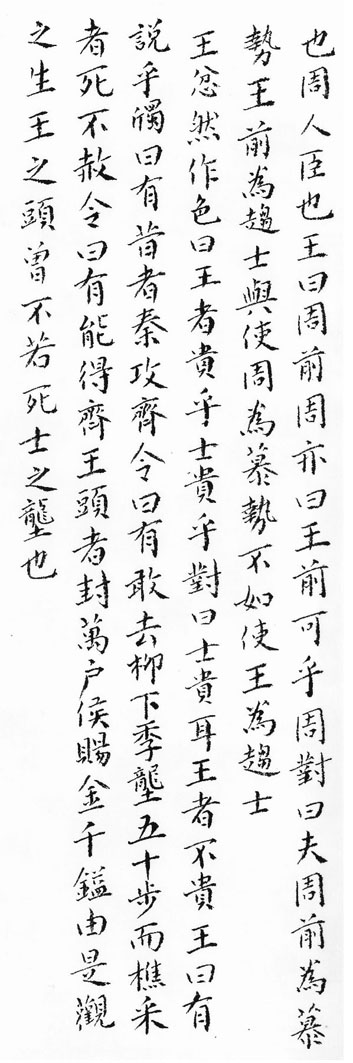 也周人臣也王曰周前周亦曰王前可乎周對曰夫周前為慕
勢王前為趨士與使周為慕勢不如使王為趨士
王忿然作色曰王者貴乎士貴乎對曰士貴耳王者不貴王曰有
說乎斶曰有昔者秦攻齊令曰有敢去柳下季壟五十步而樵采
者死不赦令曰有能得齊王頭者封萬户侯賜金千鎰由是觀
之生王之頭曾不若死士之壟也